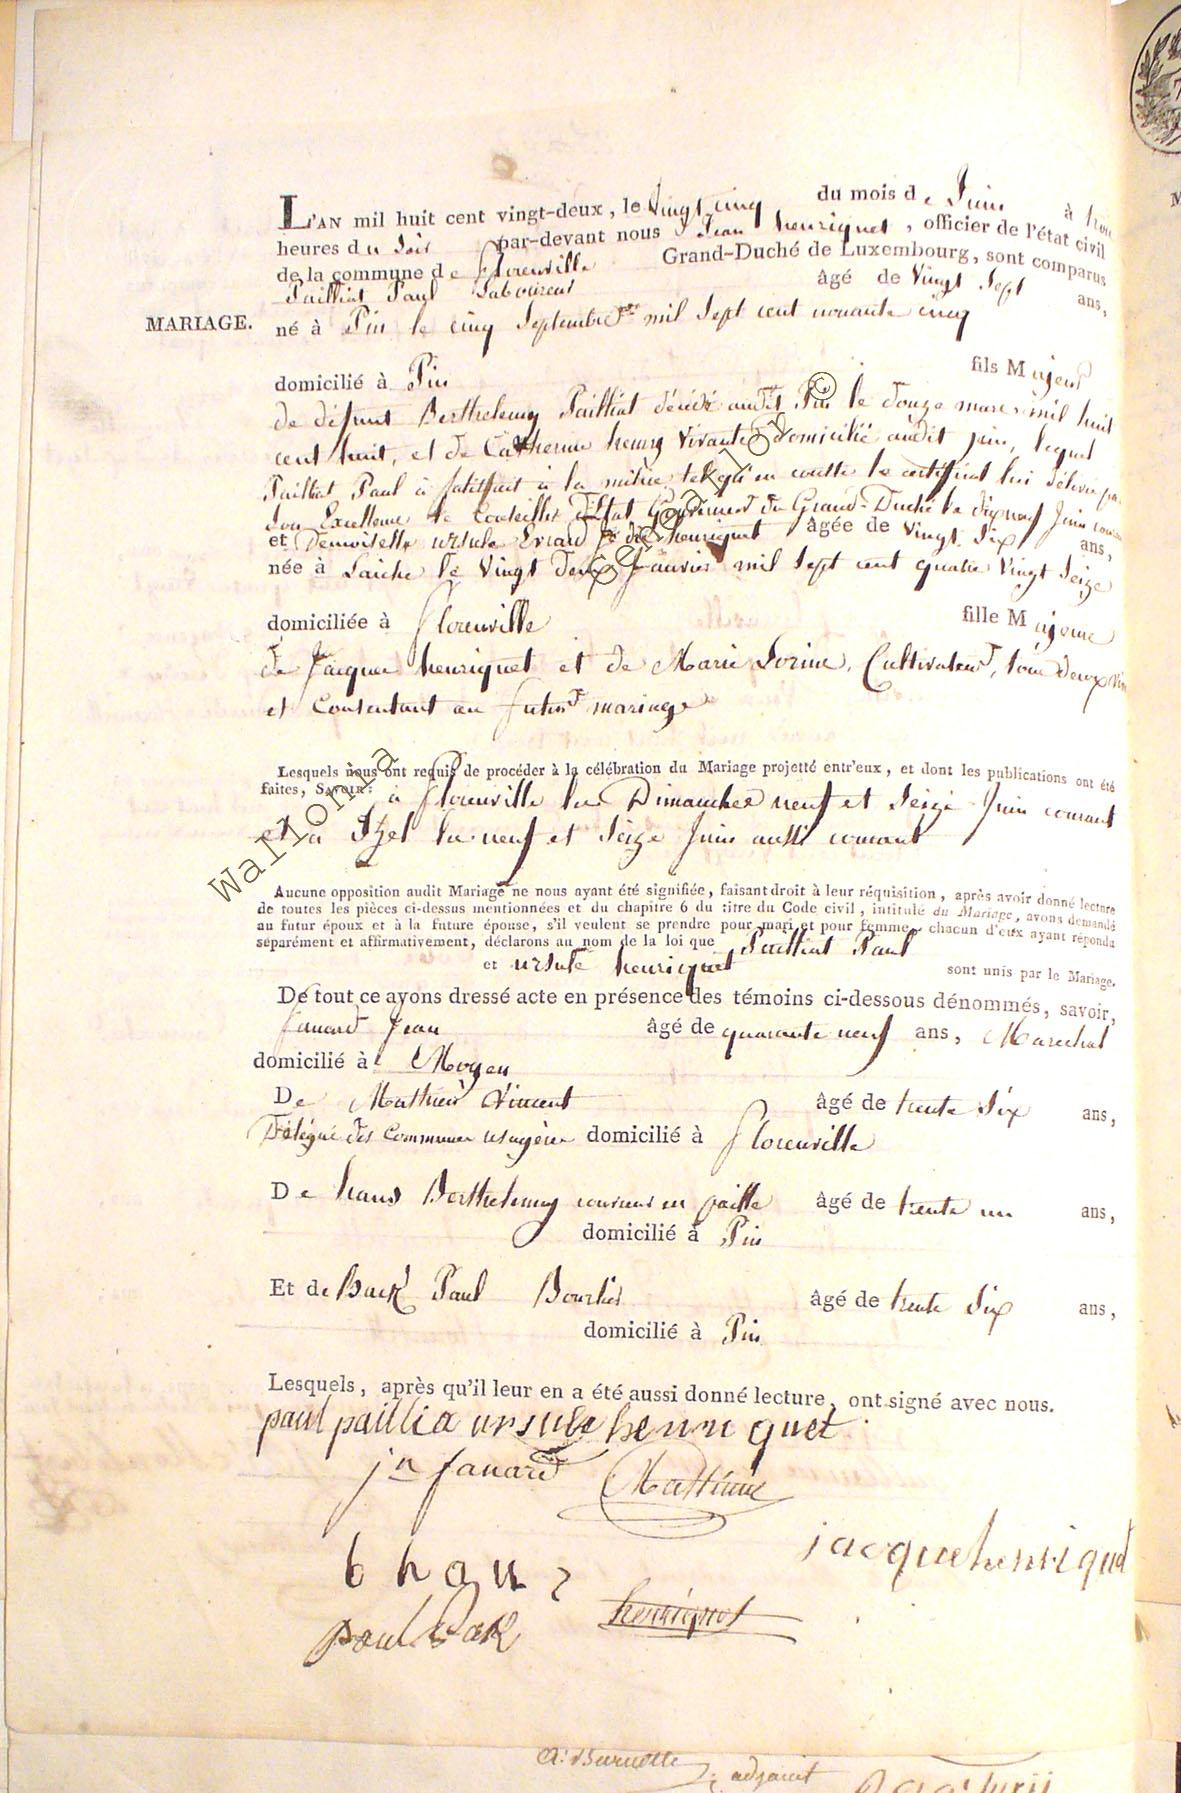 L'AN mil huit cent vingt-deux, le vingt cinq du mois de Juin à trois
heures du soir par-devant nous Jean henriquet, officier de l'état civil
de la commune de florenville Grand-Duché de Luxembourg, sont comparus
Pailliat Paul Laboureur âgé de vingt sept ans,
MARIAGE.
né à Pin le cinq Septembre mil sept cent nonante cinq
domicilié à Pin fils Majeur
de défunt Berthelemy Pailliat décédé audit Pin le douze mars mil huit
cent huit, et de Catherine henry vivante domicilié audit pin, lequel
Pailliat Paul à satisfait à la milice tel qu'en conste le certificat lui délivré par
Son Excellence le Conseiller d'Etat Gouverneur du Grand-Duché le dixneuf Juin courant
et Demoiselle ursule henriquet âgée de vingt six ans,
née à Laiche le vingt deux Janvier mil sept cent quatre vingt seize
domiciliée à florenville fille Majeure
de Jacque henriquet et de Marie Lorine, Cultivateur, tous deux
et Consentant au futur mariage
Lesquels nous ont requis de procéder à la célébration du Mariage projetté entr'eux, et dont les publications ont été
faites, SAVOIR: à florenville les Dimanches neuf et Seize Juin courant
et a Izel les neuf et Seize Juin aussi courant
Aucune opposition audit Mariage ne nous ayant été signifiée, faisant droit à leur réquisition, après avoir donné lecture
de toutes les pièces ci-dessus mentionnées et du chapitre 6 du titre du Code civil, intitulé du Mariage, avons demandé
au futur époux et à la future épouse, s'il veulent se prendre pour mari et pour femme, chacun d'eux ayant répondu
séparément et affirmativement, déclarons au nom de la loi que Pailliat Paul
et ursule henriquet sont unis par le Mariage.
De tout ce avons dressé acte en présence des témoins ci-dessous dénommés, savoir,
fanard Jean âgé de quarante neuf ans, Marechal
domicilié à Moyen
De Mathieu Vincent âgé de trente six ans,
Délégué des Communes usagères domicilié à florenville
De hans Berthelemy couvreur en paille âgé de trente un ans,
domicilié à Pin
Et de Back Paul Bourlier âgé de trente six ans,
domicilié à Pin
Lesquels, après qu'il leur en a été aussi donné lecture, ont signé avec nous.
paul paillia ursule henriquet
jn fanard Mathieu
jacque henriquet
b hans
henriquet
paul Bak
Wallonia Genealo ©
adjoint